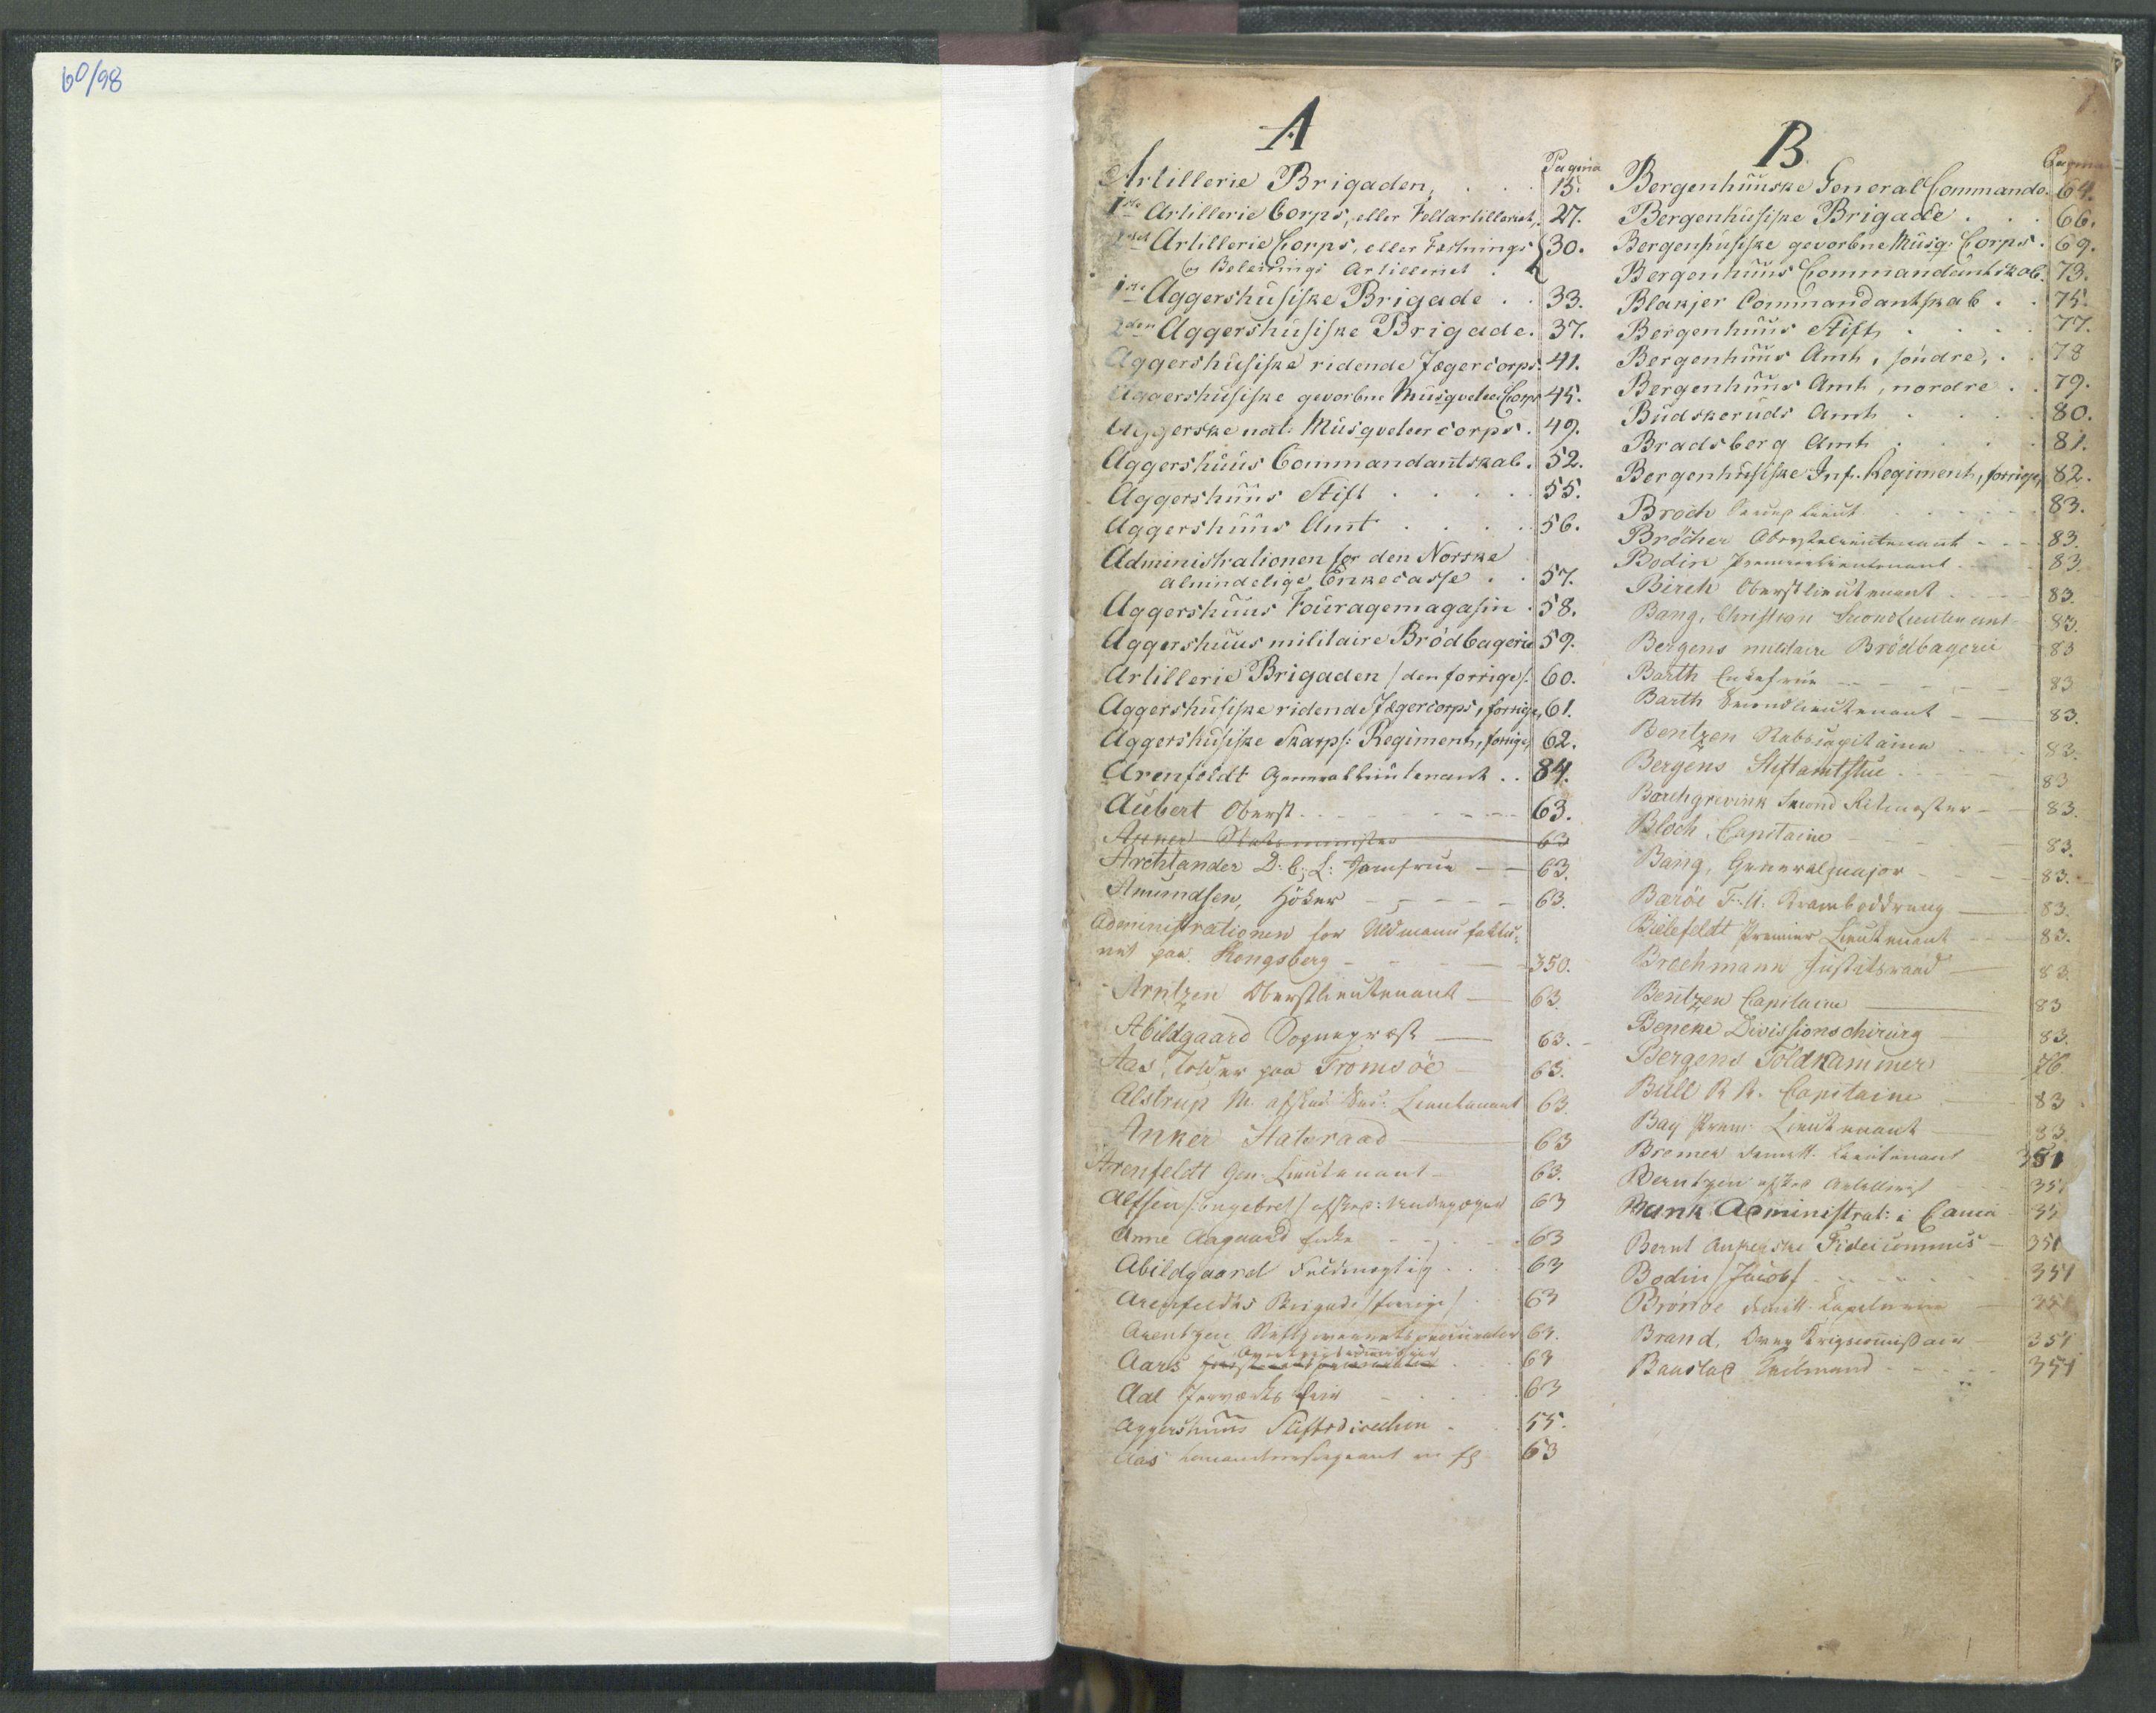 60/98
1.
A
Pagina
Artillerie Brigaden, . . . 15.
1ste Artillerie Corps, eller Feltartilleriet, 27.
2det Artillerie Corps, eller Fæstnings 30.
og Beleirings Artilleriet .
1ste Aggershusiske Brigade . . 33.
2den Aggershusiske Brigade. 37.
Aggershusiske ridende Jægercorps. 41.
Aggershusiske gevorbne Musqueteer Corps 45.
Aggerske nat: Musqveteer corps. 49.
Aggershuus Commandantskab. 52.
Aggershuus Stift . . . . . 55.
Aggershuus Amt . . . . . 56.
Administrationen for den Norske
almindelige Enkecasse . . 57.
Aggershuus Fouragemagasin . 58.
Aggershuus militaire Brödbagerie 59.
Artillerie Brigaden /den forrige/: 60.
Aggershusiske ridende Jægercorps, forrige, 61.
Aggershusiske Skarps: Regiment, forrige, 62.
Arenfeldt Generallieutenant . . 84.
Aubert Oberst 63.
Anker Statsminister 63
Archtander D: C: L: Jomfrue 63.
Amundsen, Höker 63.
Administrationen for Uldmanufaktu-
ret paa Kongsberg 350.
Arntzen Oberstlieutenant 63
Abildgaard Sognepræst 63.
Aas, Tolder paa Tromsöe 63.
Alstrup M. afsked: Sec: Lieutenant 63.
Anker Statsraad 63
Arenfeldt Gen: Lieutenant 63.
Alfsen /:Engebret/ afsked: 63
Anne Aagaard Enke 63
Abildgaard Fuldmægtig . . . 63
Arenfeldts Brigade /forrige/ 63
Arentzen 63.
Overkrigscommissair
Aars 63
Aal Jernværks Eier 63
Aggershuus Stiftsdirection . 55.
Aas Commandeersergeant 63
B
Pagina
Bergenhuuske General Commando. 64.
Bergenhusiske Brigade . . . 66.
Bergenhusiske gevorbne Musq: Corps. 69.
Bergenhuus Commandantskab. 73.
Blakjer Commandantskab . . 75.
Bergenhuus Stift, . . . . 77.
Bergenhuus Amt, söndre, . . 78
Bergenhuus Amt, nordre . . 79.
Budskeruds Amt . . . . 80.
Bradsberg Amt . . . . 81.
Bergenhusiske Inf. Regiment, forrige, 82.
Broch Second Lieut. 83.
Bröcher Oberstelieutenant 83.
Bodin Premierlieutenant 83.
Birch Oberstlieutenant 83.
Bang, Christian Secondlieutenant 83.
Bergens militaire Brödbagerie 83
Barth Enkefrue 83
Barth Secondlieutenant 83.
Bentzen Stabscapitaine 83.
Bergens Stiftamtstue 83
Barchgrevink Second Ritmester 83.
Bloch, Capitaine 83.
Bang, Generalmajor 83.
Baröe F. U. Kramboddreng 83.
Bielefeldt Premier Lieutenant 83.
Brochmann Justitsraad 83.
Bentzen Capitaine 83
Beneke Divissionschirurg 83.
Bergens Toldkammer 76
Bull R R. Capitaine 83
Bay Prem: Lieutenant 83.
Bremer demitt. Lieutenant 351
Berntzen afsked Artillerist 351
Bank Administrat: i Xania 35
Bernt Ankerske Fideicommis 351
Bodin /Jacob/ 351
Brönoe demitt. Capitaine 351
Brand, Over Krigscommissair 351
Baustad 351